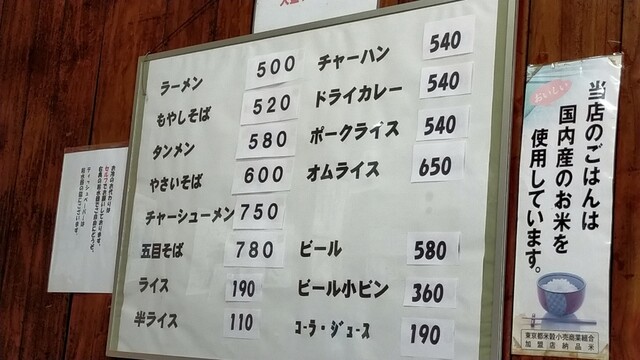 ラーメン 500
もやしそば 520
タンメン 580
やさいそば 600
チャーシューメン 750
五目そば 780
ライス 190
半ライス 110
チャーハン 540
ドライカレー 540
ポークライス 540
オムライス 650
ビール 580
ビール小ビン 360
コーラ・ジュース 190
おいしい
当店のごはんは
国内産のお米を
使用しています。
東京都米穀小売商業組合
加盟店納品米